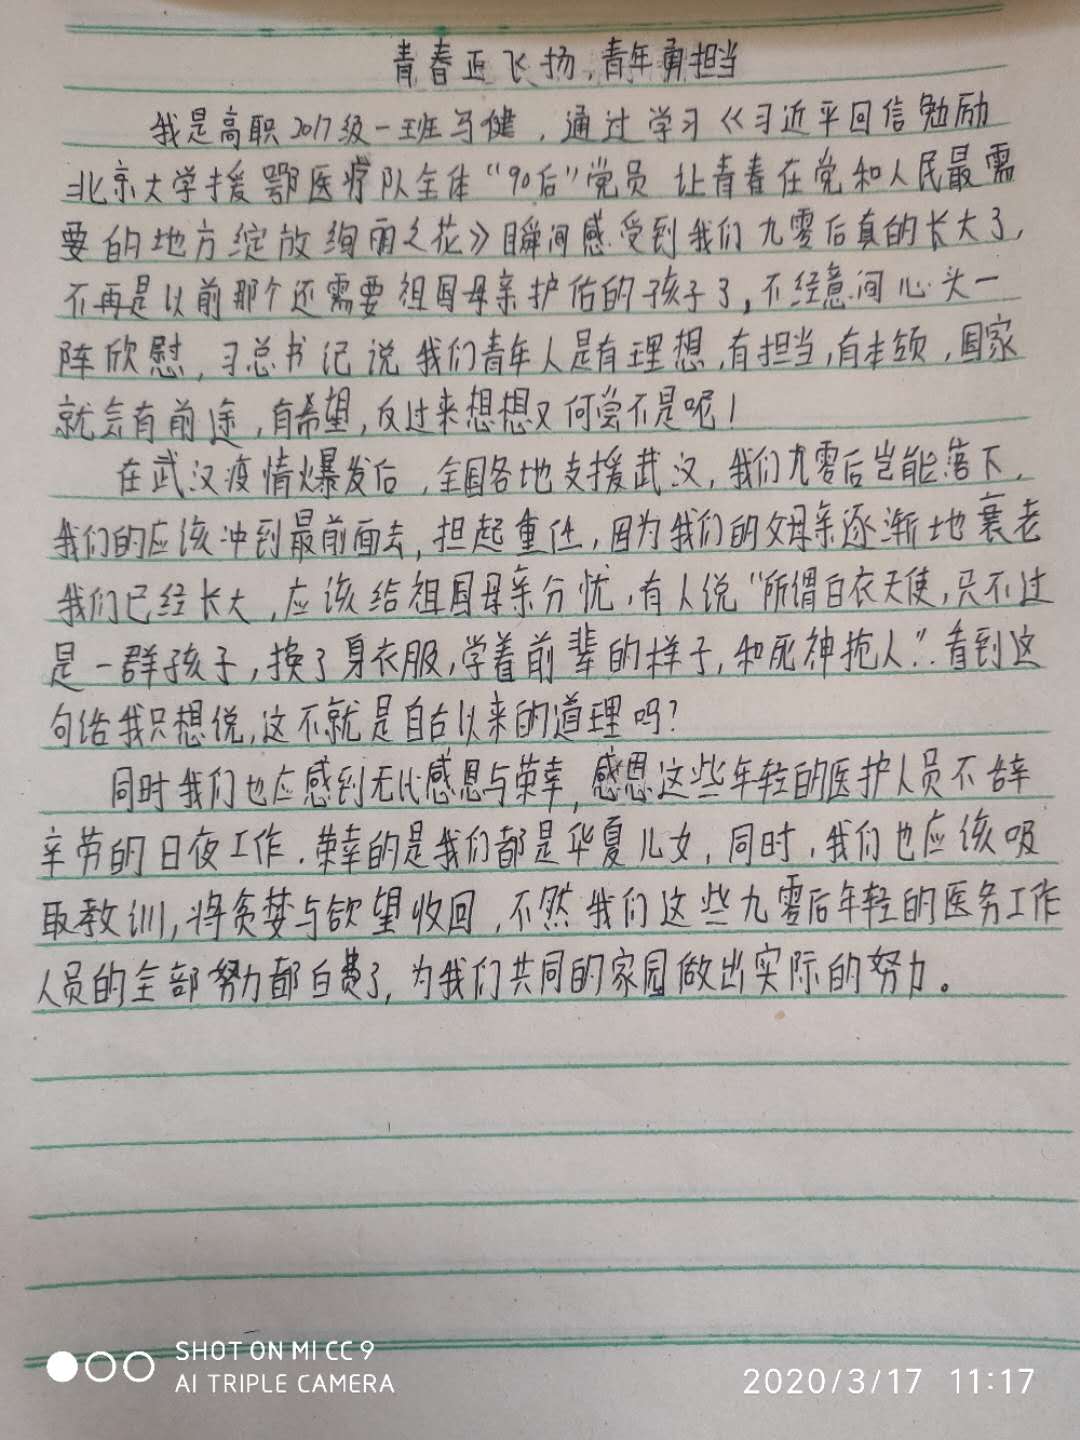 青春正飞扬，青年勇担当
我是高职2017级一班马健，通过学习《习近平回信勉励
北京大学援鄂医疗队全体“90后”党员 让青春在党和人民最需
要的地方绽放绚丽之花》瞬间感受到我们九零后真的长大了，
不再是以前那个还需要祖国母亲护佑的孩子了，不经意间心头一
阵欣慰，习总书记说我们青年人是有理想，有担当，有本领，国家
就会有前途，有希望，反过来想想又何尝不是呢！
在武汉疫情爆发后，全国各地支援武汉，我们九零后岂能落下，
我们的应该冲到最前面去，担起重任，因为我们的父母亲逐渐地衰老
我们已经长大，应该给祖国母亲分忧，有人说“所谓白衣天使，只不过
是一群孩子，换了身衣服，学着前辈的样子，和死神抢人”．看到这
句话我只想说，这不就是自古以来的道理吗？
同时我们也应感到无比感恩与荣幸，感恩这些年轻的医护人员不辞
辛劳的日夜工作．荣幸的是我们都是华夏儿女，同时，我们也应该吸
取教训，将贪婪与欲望收回，不然我们这些九零后年轻的医务工作
人员的全部努力都白费了，为我们共同的家园做出实际的努力。
SHOT ON MI CC 9
AI TRIPLE CAMERA
2020/3/17 11:17